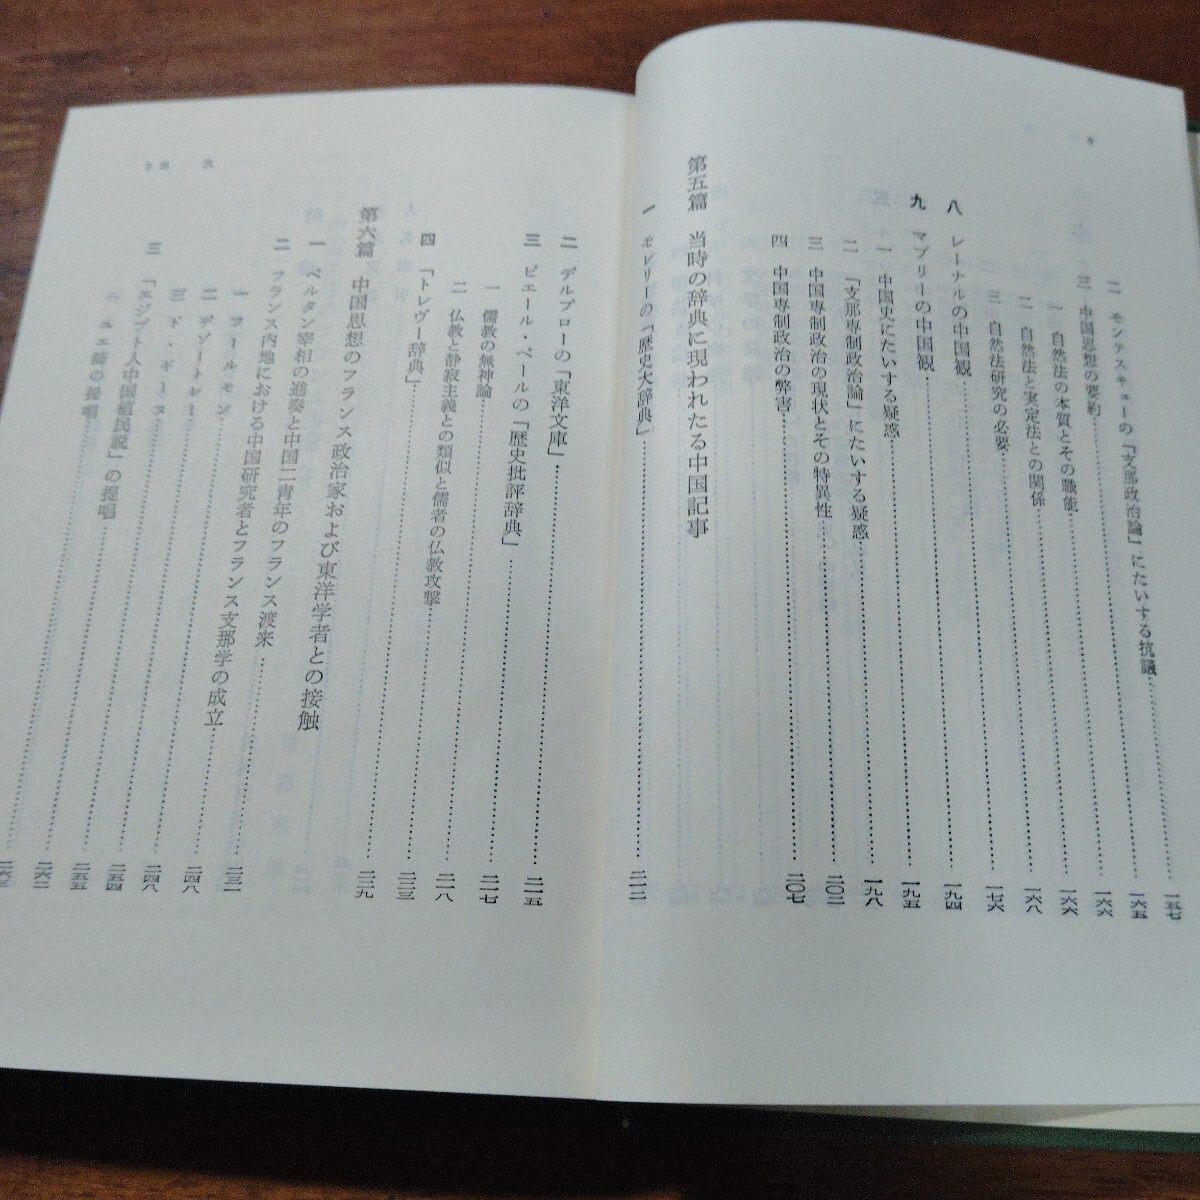 二 モンテスキューの「支那政治論」にたいする抗議 一五七
三 中国思想の要約 一六五
一 自然法の本質とその職能 一六六
二 自然法と実定法との関係 一六六
三 自然法研究の必要 一六八
八 レーナルの中国観 一七六
九 マブリーの中国観 一九四
一 中国史にたいする疑惑 一九五
二 「支那専制政治論」にたいする疑惑 一九八
三 中国専制政治の現状とその特異性 二〇二
四 中国専制政治の弊害 二〇七
第五篇 当時の辞典に現われたる中国記事
一 モレリーの「歴史大辞典」 二一二
二 デルブローの「東洋文庫」 二一五
三 ピエール・ベールの「歴史批評辞典」 二一七
一 儒教の無神論 二一八
二 仏教と静寂主義との類似と儒者の仏教攻撃 二二三
四 「トレヴー辞典」 二二九
第六篇 中国思想のフランス政治家および東洋学者との接触
一 ベルタン宰相の進奏と中国二青年のフランス渡来 二三一
二 フランス内地における中国研究者とフランス支那学の成立 二四八
一 フールモン 二四八
二 デゾートレー 二五四
三 ド・ギーヌ 二五五
三 「エジプト人中国植民説」の提唱 二六二
一 ユエ師の提唱
次